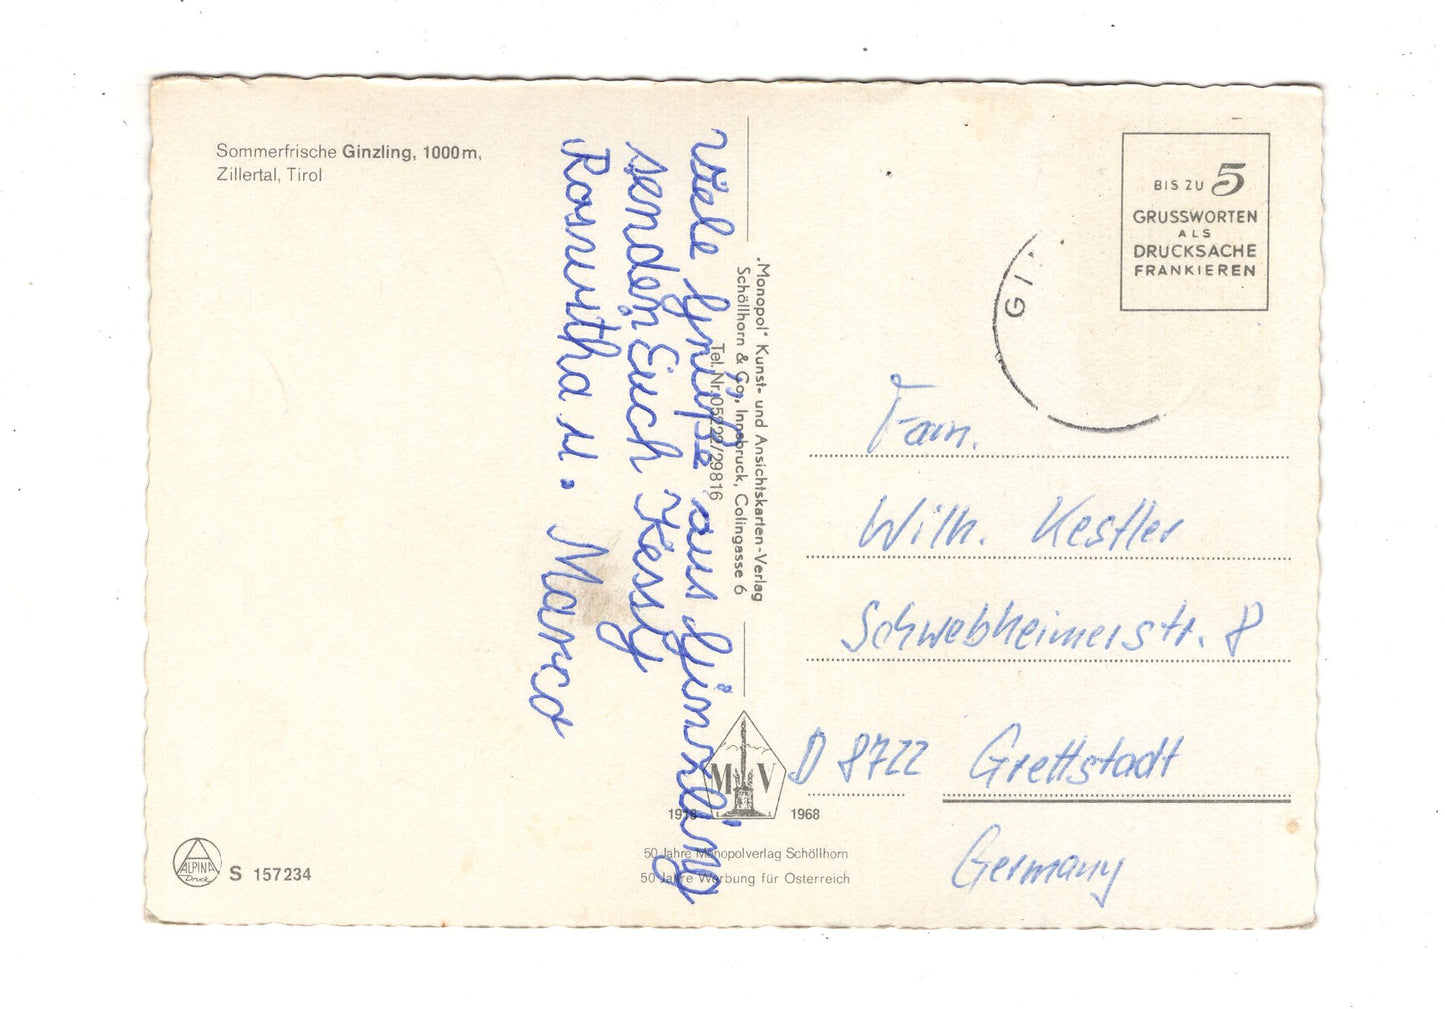 Sommerfrische Ginzling, 1000m,
Zillertal, Tirol
Viele Grüße aus Ginzling
senden Euch Kessy
Roswitha u. Marco
„Monopol" Kunst- und Ansichtskarten-Verlag
Schöllhorn & Co., Innsbruck, Colingasse 6
Tel. Nr. 05222/29816
BIS ZU 5
GRUSSWORTEN
ALS
DRUCKSACHE
FRANKIEREN
GI
Fam.
Wilh. Kestler
Schwebheimerstr. 8
D 8722 Grettstadt
Germany
M V
1918 1968
50 Jahre Monopolverlag Schöllhorn
50 Jahre Werbung für Österreich
ALPINA
Druck
S 157234